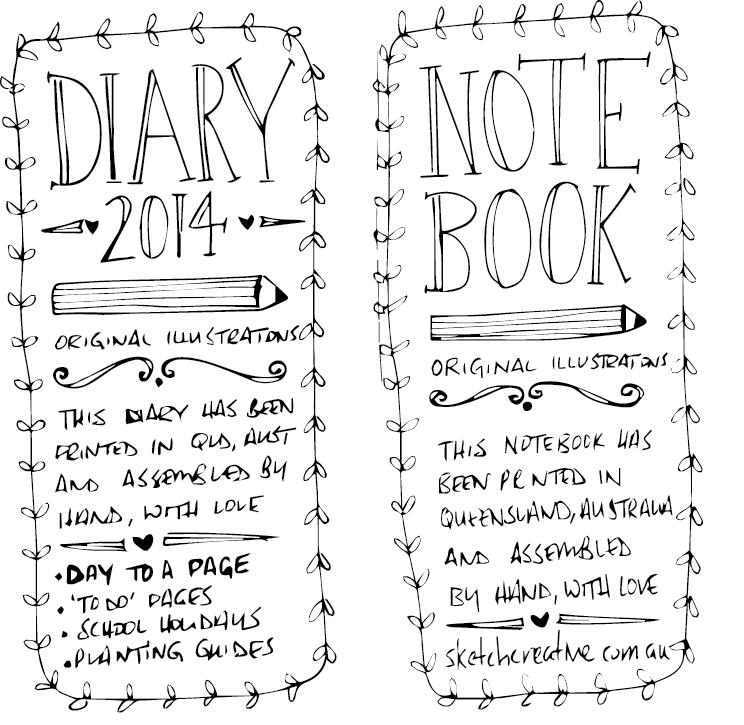 DIARY
2014
ORIGINAL ILLUSTRATONS
THIS DIARY HAS BEEN
PRINTED IN QLD, AUST
AND ASSEMBLED BY
HAND, WITH LOVE
• DAY TO A PAGE
• 'TO DO' PAGES
• SCHOOL HOLIDAYS
• PLANTING GUIDES
NOTE
BOOK
ORIGINAL ILLUSTRATIONS
THIS NOTEBOOK HAS
BEEN PRINTED IN
QUEENSLAND, AUSTRALIA
AND ASSEMBLED
BY HAND, WITH LOVE
sketchcreative.com.au